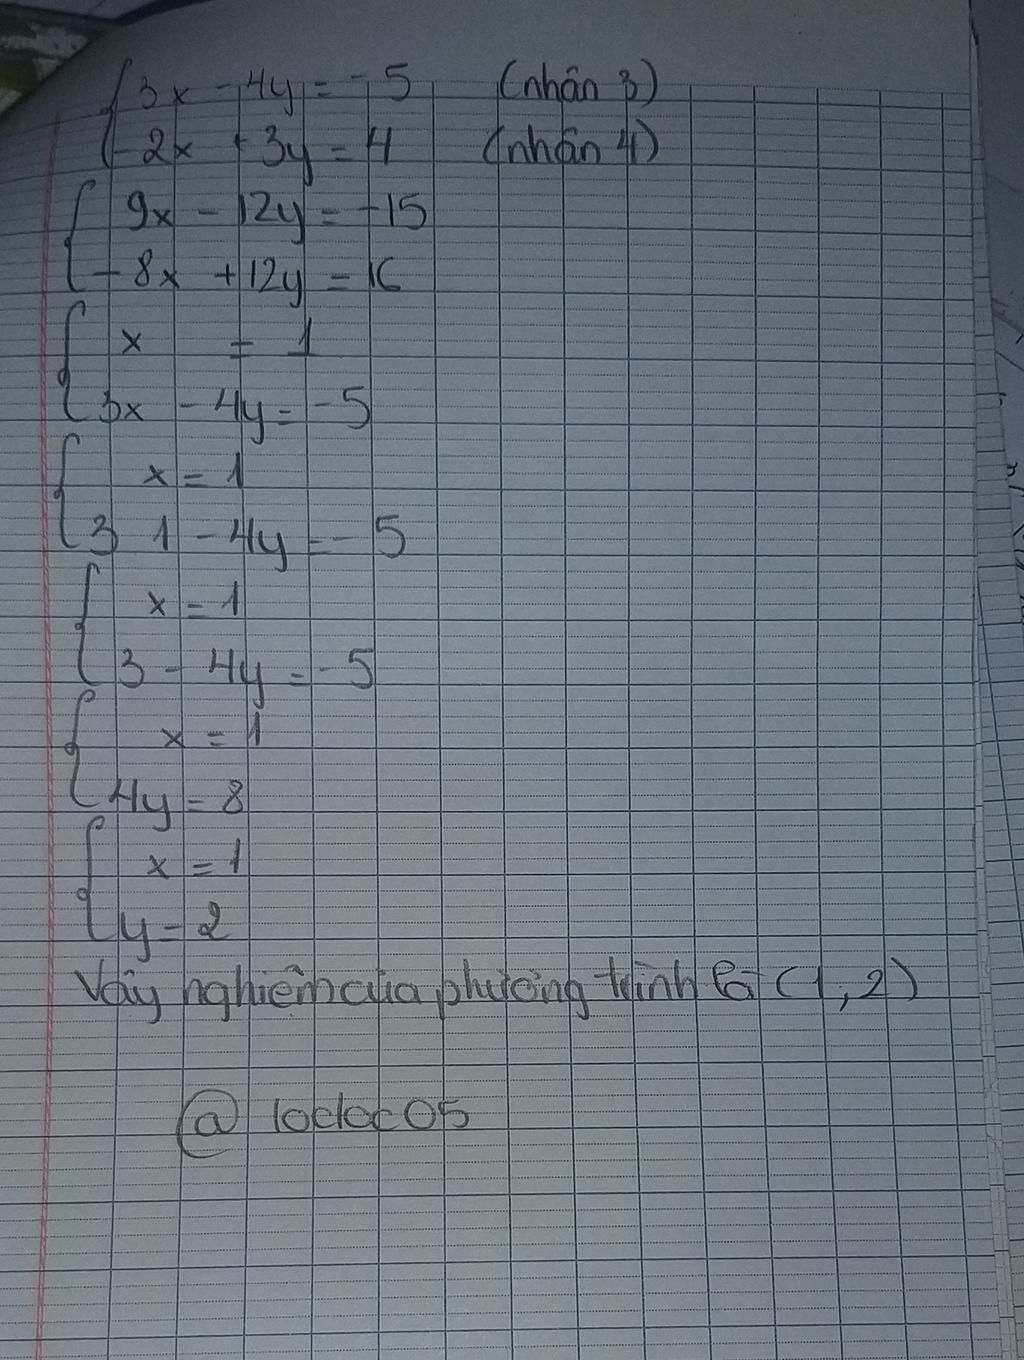 3x - 4y = -5 (nhân 3)
-2x + 3y = 4 (nhân 4)
9x - 12y = -15
-8x + 12y = 16
x = 1
3x - 4y = -5
x = 1
3 1 - 4y = -5
x = 1
3 - 4y = -5
x = 1
4y = 8
x = 1
y = 2
Vậy nghiệm của phương trình là (1, 2)
@ locloc05